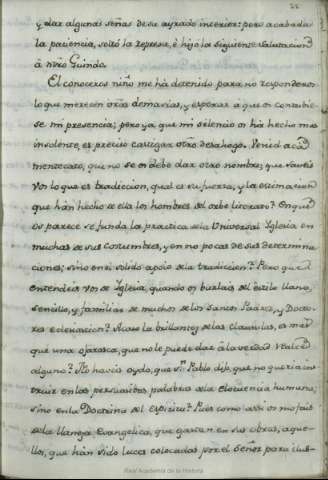 y dar algunas señas de su ayrado interior: pero acabada
la paciencia, soltó la represa, è hizo la siguiente salutacion
à nrõ Guindo.
El conoceros niño me há detenido para no responderos
lo que merecen vrãs demasias, y esperar à que os contubie-
se mi presencia; pero ya que mi silencio os hà hecho mas
insolente, es preciso castigar vrõ desahogo. Venid acà
mentecato, que no se os debe dar otro nombre; que sabeis
vos lo que es tradicion, qual es su fuerza, y la estimacion
que han hecho de ella los hombres del orbe literario? En què
os parece se funda la practica de la Universal Iglesia en
muchas de sus costumbres, y en no pocas de sus determina-
ciones; sino en el solido apoyo de la tradicion? Pero què
entendeis vos de Iglesia, quando os burlais del estilo llano,
sencillo, y familiar de muchos de los Santos Padres, y Docto-
res
Acaso la brillantez de las clausulas, es mas
que una ojarasca, que no le puede dar à la verdad realce
alguno? No haveis oydo, que Sn Pablo dijo, que no queria ins-
truir en las persuasibas palabras de la Eloquencia humana,
sino en la Doctrina del Espiritu? Pues como assi os mofais
de la llaneza Evangelica, que gastan en sus obras, aque-
llos, que han sido luces colocadas por el Señor para ilus-
Real Academia de la Historia